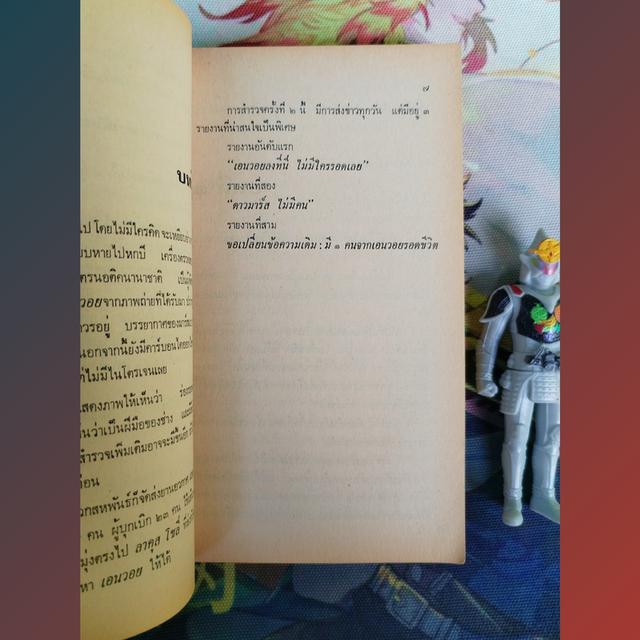 บท
ไป โดยไม่มีใครคิด จะเหยียบย่าง
หายไปหกปี
นานาชาติ
จากภาพถ่ายที่ได้รับมา
อยู่ บรรยากาศของมาร์ส
นอกจากนี้ยังมีคาร์บอนไดออก
ไม่มีไนโตรเจนเลย
แสดงภาพให้เห็นว่า
ว่าเป็นฝีมือของช่าง
สำรวจเพิ่มเติมอาจจะมีขึ้นอีก
สหพันธ์ก็จัดส่งยานอวกาศ
คน ผู้บุกเบิก ๒๓ คน
มุ่งตรงไป ลาคุส โซลี่
หา เอนวอย ให้ได้
๗
การสำรวจครั้งที่ ๒ นี้ มีการส่งข่าวทุกวัน แต่มีอยู่ ๓
รายงานที่น่าสนใจเป็นพิเศษ
รายงานอันดับแรก
“เอนวอยลงที่นี่ ไม่มีใครรอดเลย”
รายงานที่สอง
“ดาวมาร์ส ไม่มีคน”
รายงานที่สาม
ขอเปลี่ยนข้อความเดิม : มี ๑ คนจากเอนวอยรอดชีวิต